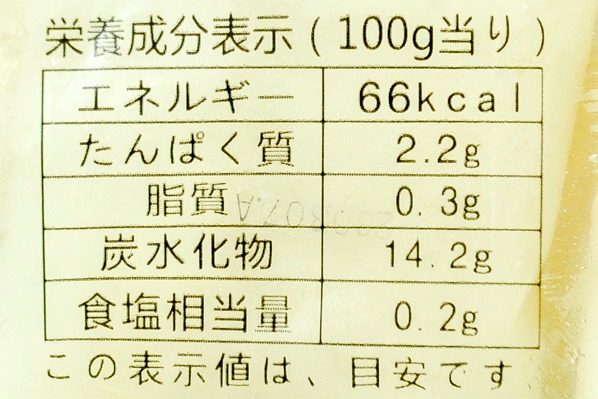 栄養成分表示(100g当り)
エネルギー 66kcal
たんぱく質 2.2g
脂質 0.3g
炭水化物 14.2g
食塩相当量 0.2g
この表示値は、目安です